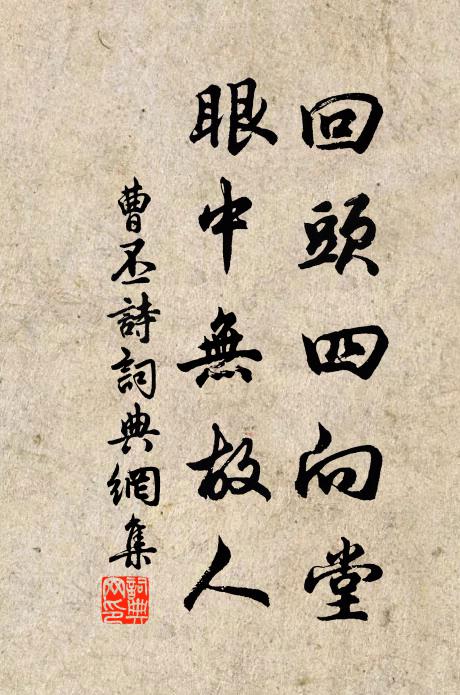 回頭四向堂
眼中無故人
曹丕詩詞典網集
詞典網印